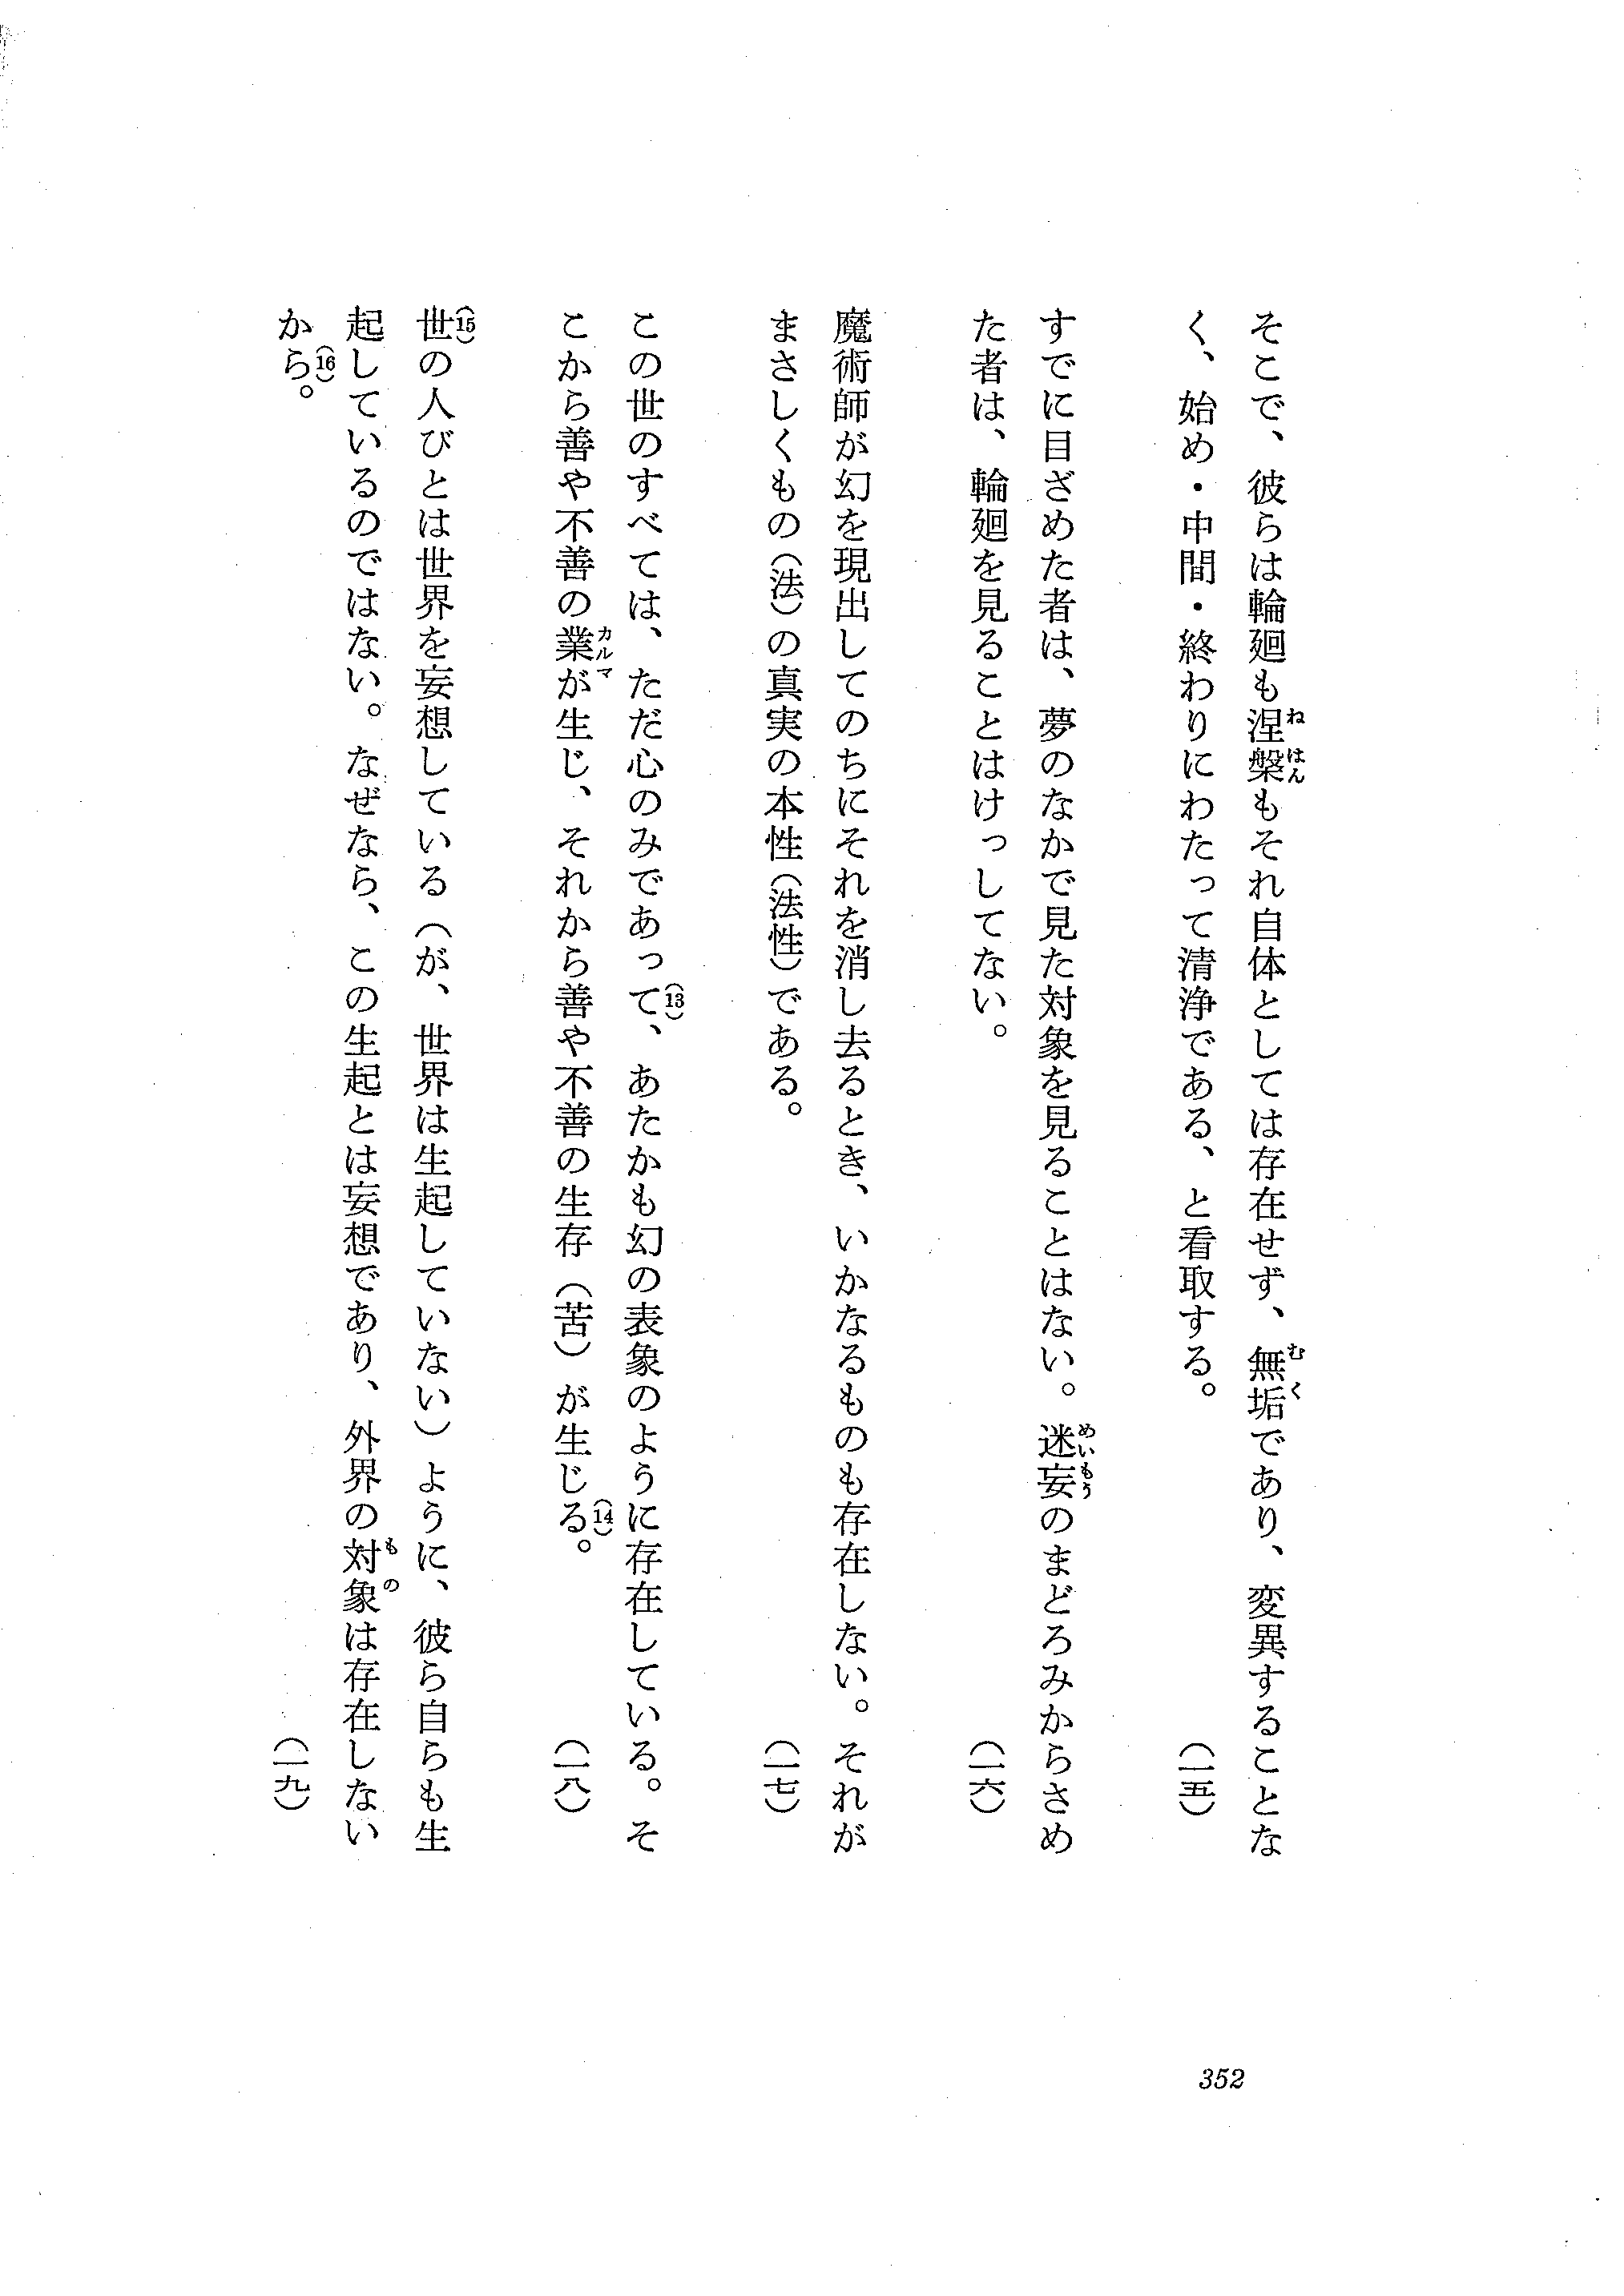 そこで、彼らは輪廻も涅槃もそれ自体としては存在せず、無垢であり、変異することな
く、始め・中間・終わりにわたって清浄である、と看取する。（一五）
すでに目ざめた者は、夢のなかで見た対象を見ることはない。迷妄のまどろみからさめ
た者は、輪廻を見ることはけっしてない。（一六）
魔術師が幻を現出してのちにそれを消し去るとき、いかなるものも存在しない。それが
まさしくもの（法）の真実の本性（法性）である。（一七）
この世のすべては、ただ心のみであって(13)、あたかも幻の表象のように存在している。そ
こから善や不善の業が生じ、それから善や不善の生存（苦）が生じる(14)。（一八）
世(15)の人びとは世界を妄想している（が、世界は生起していない）ように、彼ら自らも生
起しているのではない。なぜなら、この生起とは妄想であり、外界の対象は存在しない
から(16)。（一九）
ねはん
むく
めいもう
カルマ
もの
352